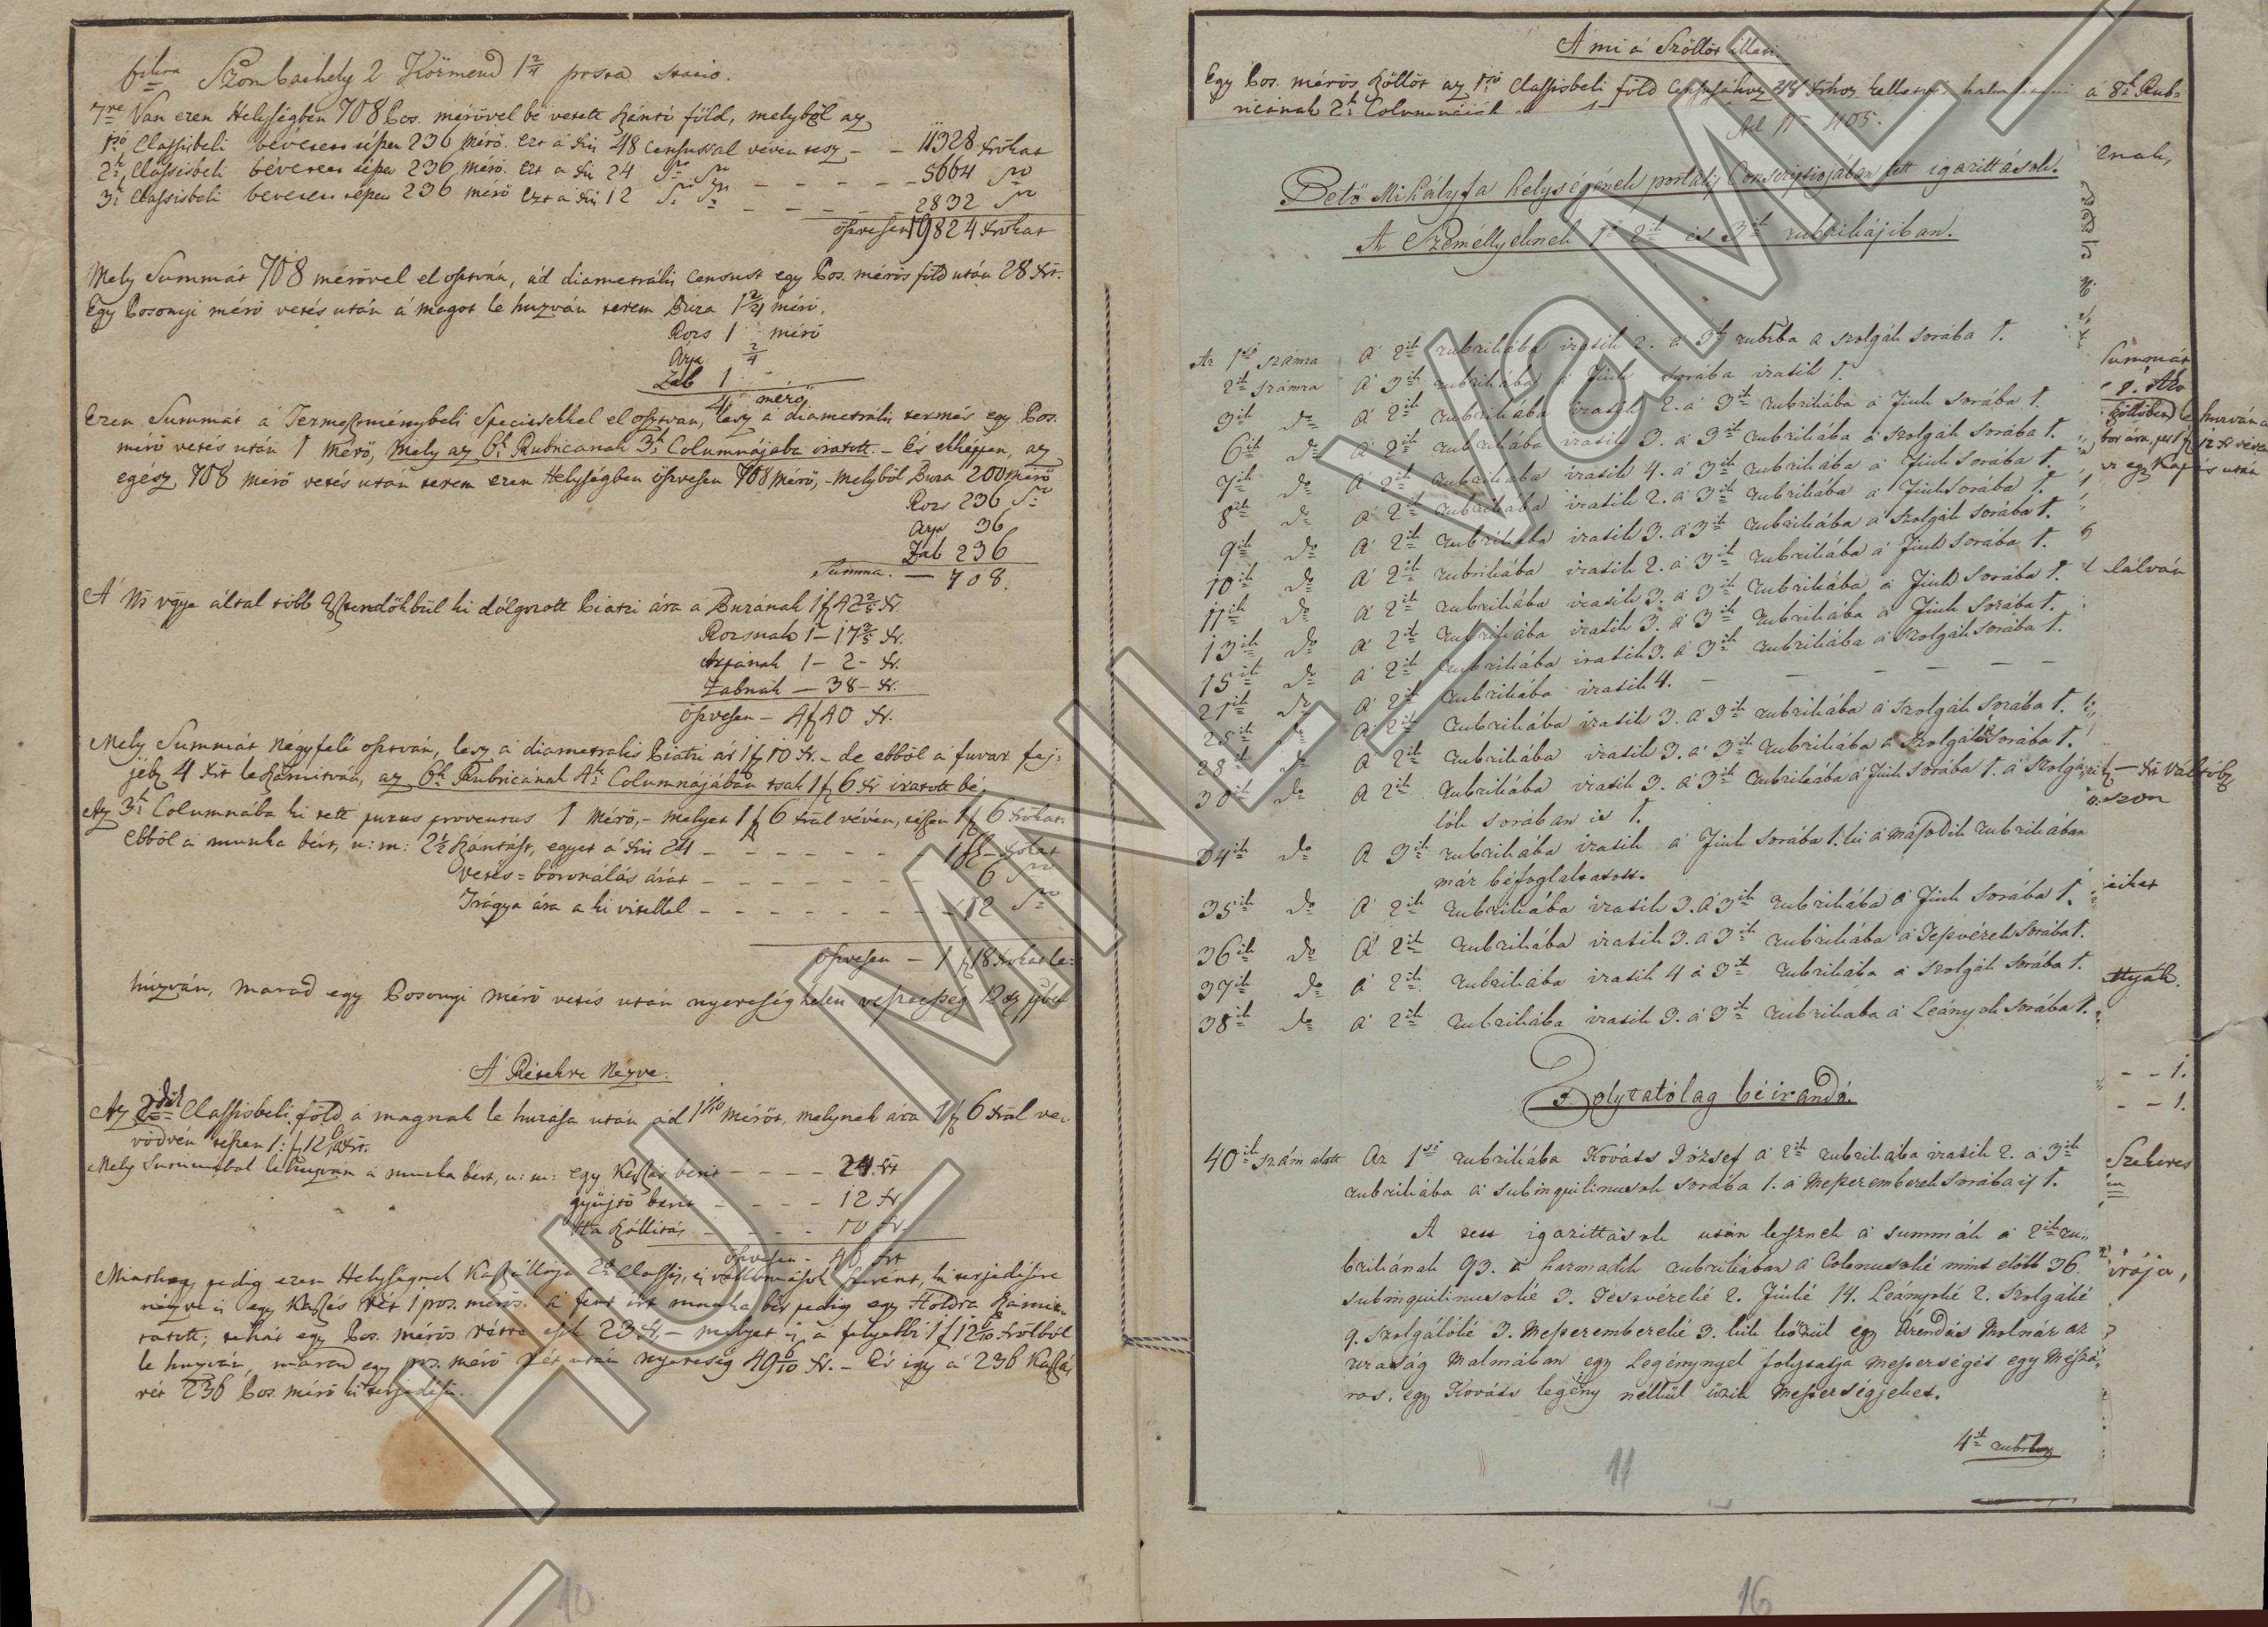 Szombathely 2 Körmend 1 2/4 posta statio.
7re Van ezen Helységben 708 Pos. mérövel bé vetett szántó föld, melyböl az
1sö Classisbeli bévetett tészen 236 mérö. Ezt a Xri 48 censussal vévén tesz - - 11328 Xrokat
2k Classisbeli béveten tészen 236 mérö. Ezt a Xri 24 - - - - - - 5664
3k Classisbeli béveten tészen 236 mérö Ezt a Xri 12 - - - - 2832
öszvesen 19824 Xrokat
Mely Summát 708 mérövel el osztván, ád diametrális censust egy Pos. mérös föld után 28 Xrt.
Egy Posonyi mérö vetés után á magot le huzván terem Buza 1 2/4 mérö.
Rozs 1 mérö
Árpa 2/4
Zab 1
4 mérö
Ezen Summát a Termesztménybeli Speciesekkel el osztván, lesz á diametrális termés egy Pos.
mérö vetés után 1 mérö, mely az 6k Rubricanak 3k Columnájaba iratott. - És eképpen, az
egész 708 mérö vetés után terem ezen Helységben öszvesen 708 mérö, - melyböl Buza 200 mérö
Rozs 236
Arpa 36
Zab 236
Summa. - 708.
A Ns vgye által több Esztendökbül ki dólgozott Piatzi ára a Buzának 1 f 42 2/5 Xr
Rozsnak 1 - 17 3/5 Xr.
Árpának 1 - 2 - Xr.
Zabnak - 38 - Xr.
öszvesen - 4 f 40 Xr.
Mely Summát négyfelé osztván, lesz á diametralis Piatzi ár 1 f 10 Xr. - de ebböl a fuvar fej:
jebz 4 Xrt le számitván, az 6k Rubricának 4k Columnájában tsak 1 f 6 Xr iratott bé.
Az 3k Columnába ki tett purus proventus 1 mérö, - melyet 1 f 6 Xral vévén, tészen 1 f 6 Xrokat.
Ebböl á munka bért, u: m: 2 1/2 szántást, egyet á Xri 24 - - - - - - - 1 f - Xrokat
Vetés = boronálás árát - - - - - - - 6
Trágya ára a ki vitellel - - - - - - - - 12
öszvesen - 1 f 18 Xrokat le=
húzván, marad egy Posonyi mérö vetés után nyereség helen vesztesség 12
A Rétekre Nézve.
Az 2dik Classisbeli föld á magnak le huzása után ád 1 1/10 mérött, melynek ára 1 f 6 Xral ve
vödvén tészen 1: f 12 Xrt.
Mely Summábol le huzván á munka bért, u: m: egy Kaszás bérit - - - - 24 Xrt
gyüjtö bérit - - - - 12 Xr
Ha szállitás - - - - 10 Xr
öszvesen - 46 Xrt
Minthogy pedig ezen Helységnek Kaszállója 2k Classis, és vallomások szerént, ki terjedésire
nézve is egy Kaszás rét 1 pos. mérös. A fent írt munka bér pedig egy Holdra számit
tatott; tehát egy Pos. mérös rétre esik 23 Xr - melyet is a felyebbi 1 f 12 6/10 Xrokból
le huzván, marad egy pos. mérö rét után nyereség 49 6/10 Xr. - És igy á 236 Kaszás
rét 236 Pos. mérö ki terjedésü.
A mi á Szöllöt illeti
Egy Pos. mérös szöllöt az 1sö Classisbeli föld Censusához á 8k Rub-
ricának 2k Columnájának
Ad N 405.
Petö Mihályfa helységének portalis Conscriptiojában tett igazittások.
Az Személlyeknek 1ö 2ik és 3ik rubrikájiban.
Az 1sö számra A 2ik rubrikába iratik 2. a 3ik rubrba a szolgák sorába 1.
2ik számra A 3ik rubrikába a Fiuk sorába iratik 1.
3ik do A 2ik rubrikába iratik 2. a 3ik rubrikába a Fiuk sorába 1.
6ik do A 2ik rubrikába iratik 3. a 3ik rubrikába a szolgák sorába 1.
7ik do A 2ik rubrikába iratik 4. a 3ik rubrikába a Fiuk sorába 1.
8ik do A 2ik rubrikába iratik 2. a 3ik rubrikába a Fiuk sorába 1.
9ik do A 2ik rubrikába iratik 3. a 3ik rubrikába a szolgák sorába 1.
10ik do A 2ik rubrikába iratik 2. a 3ik rubrikába a Fiuk sorába 1.
11ik do A 2ik rubrikába iratik 3. a 3ik rubrikába a Fiuk sorába 1.
13ik do A 2ik rubrikába iratik 3. a 3ik rubrikába a Fiuk sorába 1.
15ik do A 2ik rubrikába iratik 3. a 3ik rubrikába a szolgák sorába 1.
21ik do A 2ik rubrikába iratik 4. - - - - -
25ik do A 2ik rubrikába iratik 3. a 3ik rubrikába a szolgák sorába 1.
28ik do A 2ik rubrikába iratik 3. a 3ik rubrikába a szolgálók sorába 1.
30ik do A 2ik rubrikába iratik 3. a 3ik rubrikába a Fiuk sorába 1. a szolgá,
lók sorában is 1.
34ik do A 3ik rubrikába iratik a Fiuk sorába 1. ki a második rubrikában
már béfoglaltatott.
35ik do A 2ik rubrikába iratik 3. a 3ik rubrikába a Fiuk sorába 1.
36ik do A 2ik rubrikába iratik 3. a 3ik rubrikába a Tesvérek sorába 1.
37ik do A 2ik rubrikába iratik 4 a 3ik rubrikába a szolgák sorába 1.
38ik do A 2ik rubrikába iratik 3. a 3ik rubrikába a Leányok sorába 1.
Folytatólag béirandó.
40ik szám alatt Az 1sö rubrikába Kováts József a 2ik rubrikába iratik 2. a 3ik
rubrikába a subinquilinusok sorába 1. a Mesteremberek sorába is 1.
A tett igazittások után lesznek a summák a 2ik ru,
brikának 93. a harmadik rubrikában a Colonusoké mint elöbb 36.
subinquilinusoké 3. Tesvéreké 2. Fiúké 14. Leányoké 2. Szolgáké
9. szolgálóké 3. Mesterembereké 3. kik közül egy Arendás Molnár az
uraság Malmában egy Legénynyel folytatja mesterségét egy Mészá,
ros, egy Kováts legény nélkül üzik Mesterségjeket.
4ik rubrika
11
10
16
Summát
le huzván
után
tálván
Szekeres
HU MNL VaML